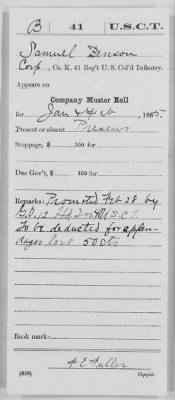 B 41 U.S.C.T.
Samuel Denson
Corp, Co. K, 41 Reg't U. S. Col'd Infantry.
Appears on
Company Muster Roll
for Jan & Feb, 1865.
Present or absent Present
Stoppage, $ 100 for
Due Gov't, $ 100 for
Remarks: Promoted Feb 28 by
G.O. 12 Hd 2
To be deducted for appen-
dages lost 50 cts
Book mark:
A E Fuller
(858) Copyist.